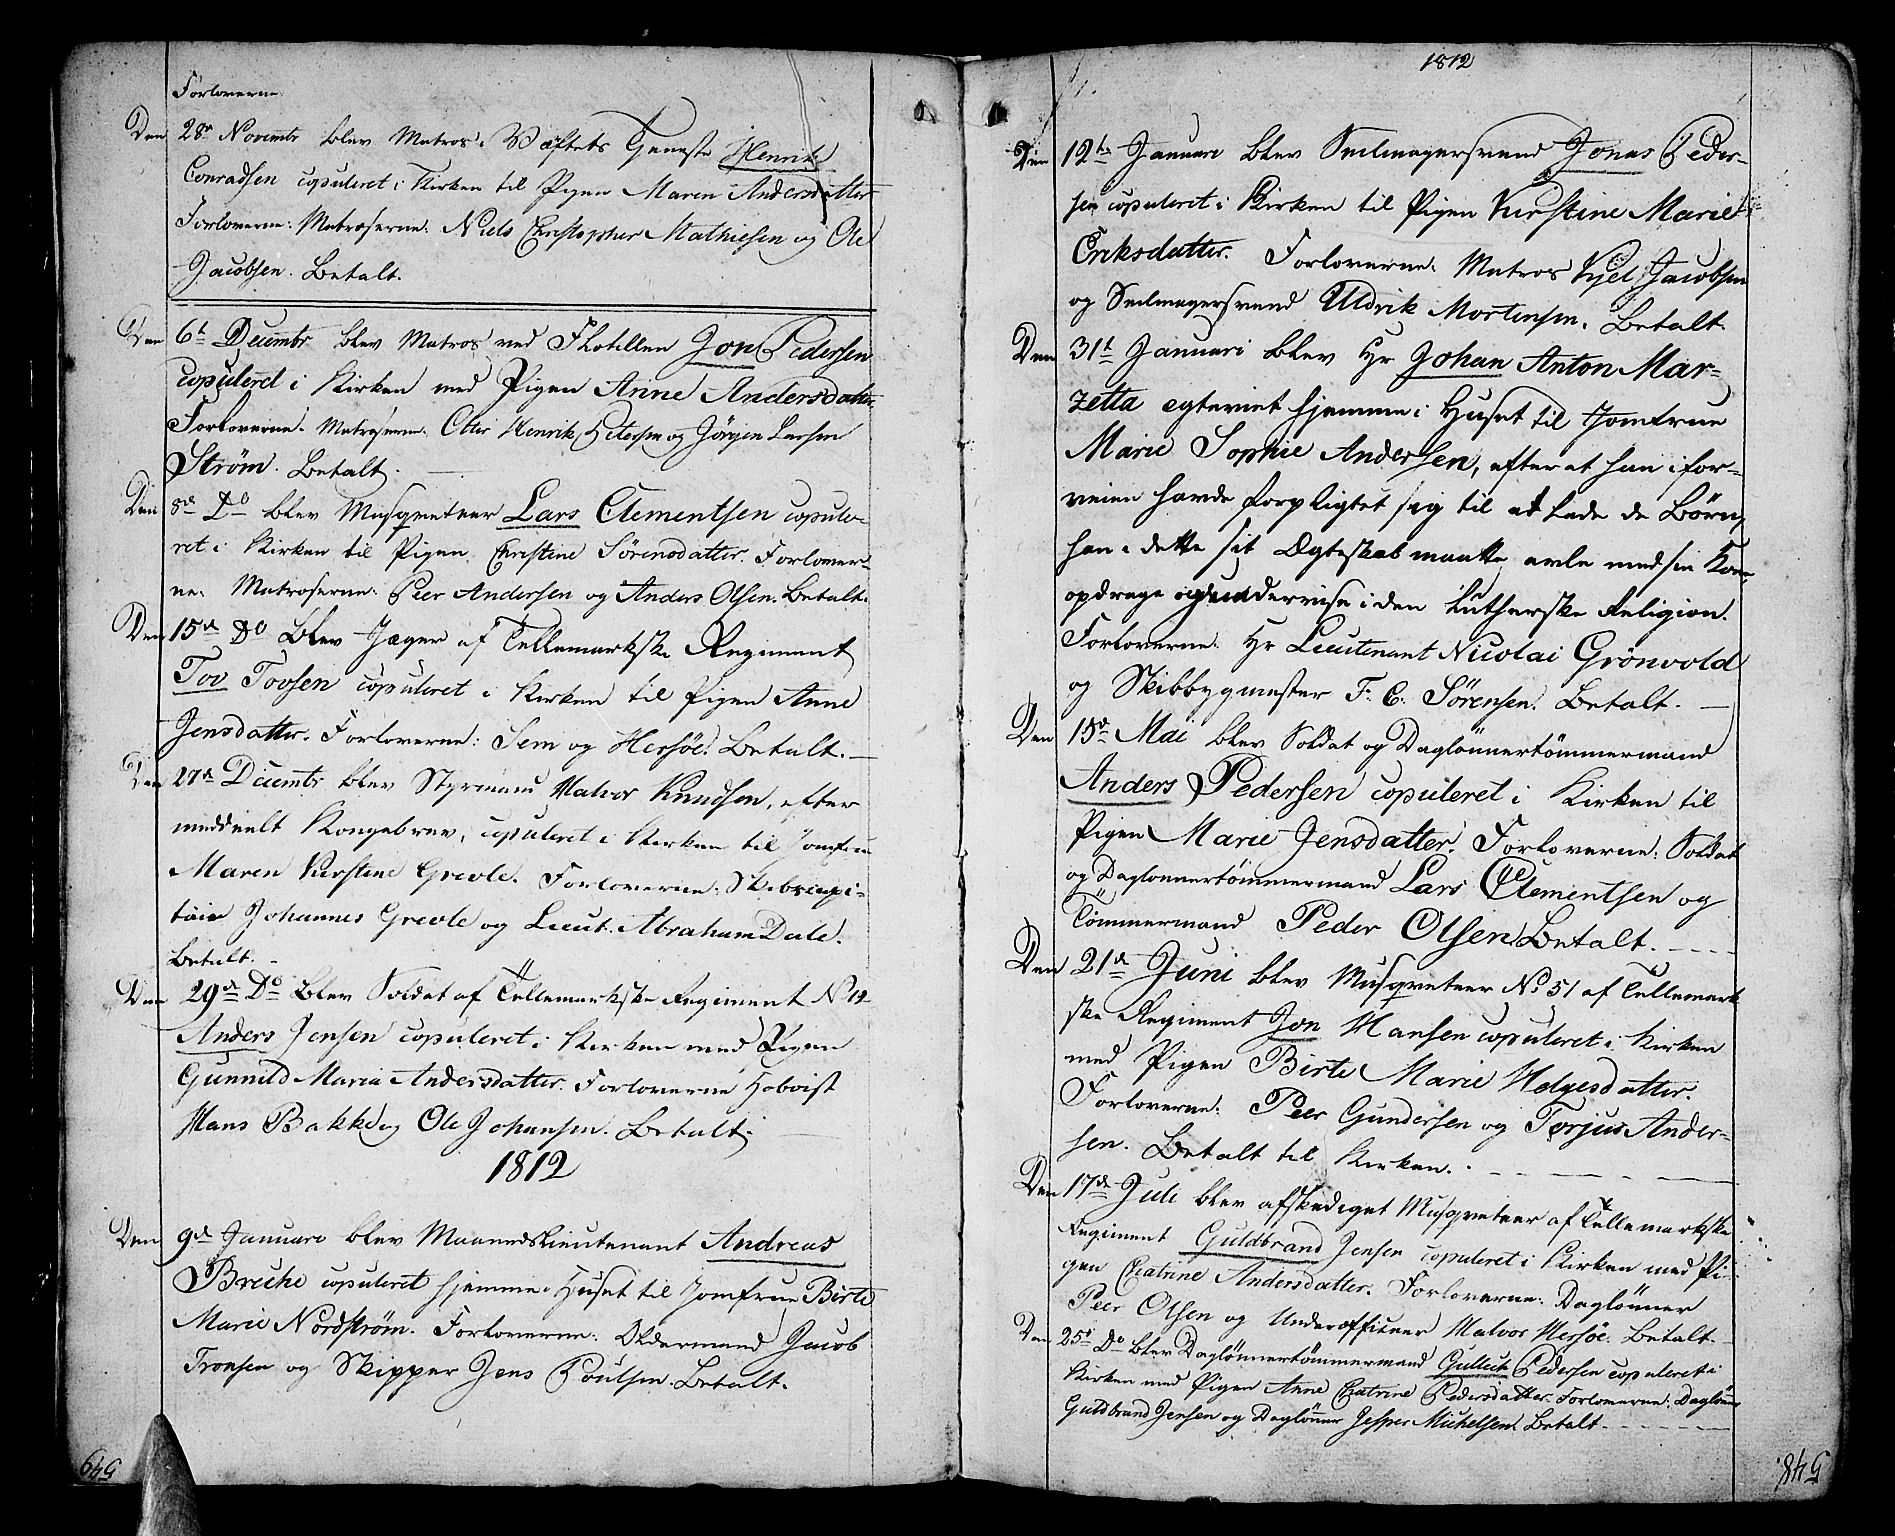 Forloverne
Den 28de Novembr blev Matros i Værftets Tjeneste Henrik
Conradsen copuleret i Kirken til Pigen Maren Andersdatter
Forloverne: Matroserne: Niels Christopher Mathiesen og Ole
Jacobsen. Betalt.
Den 6t Decembr blev Matros ved Flotillen Jon Pedersen
copuleret i Kirken med Pigen Anne Andersdatter
Forloverne. Matroserne. Otter Henrik Petersen og Jörgen Larsen
Ström. Betalt.
Den 8de Do blev Musqveteer Lars Clementsen copule-
ret i Kirken til Pigen Christine Sörensdatter. Forlover-
ne: Matroserne: Peer Andersen og Anders Olsen. Betalt.
Den 15de Do blev Jæger af Tellemarkske Regiment
Tov Tovsen copuleret i Kirken til Pigen Anne
Jensdatter. Forloverne: Sem og Hersöe. Betalt.
Den 27de Decembr blev Styrmand Halvor Knudsen, efter
meddeelt Kongebrev, copuleret i Kirken til Jomfrue
Maren Kirstine Grevle. Forloverne: Skibscapi-
tain Johannes Grevle og Lieut. Abraham Dale.
Betalt.
Den 29de Do blev Soldat af Tellemarkske Regiment N 12
Anders Jensen copuleret i Kirken med Pigen
Gunnild Maria Andersdatter. Forloverne Hoboist
Hans Bakke og Ole Johansen. Betalt.
1812
Den 9de Januari blev Maanedslieutenant Andreas
Breche copuleret hjemme i Huset til Jomfrue Birte
Marie Nordström. Forloverne: Oldermand Jacob
Tronsen og Skipper Jens Poulsen. Betalt.
549
1812
Den 12te Januari blev Seilmagersvend Jonas Peder-
sen copuleret i Kirken til Pigen Kirstine Marie
Eriksdatter. Forloverne: Matros Kjel Jacobsen
og Seilmagersvend Uldrik Mortensen. Betalt.
Den 31t Januari blev Hr Johan Anton Mar-
zetta egteviet hjemme i Huset til Jomfrue
Marie Sophie Andersen, efter at han i for-
veien havde forpligtet sig til at lade de Börn,
han i dette sit Ægteskab maatte avle med sin Kone,
opdrage og undervise i den Lutherske Religion.
Forloverne: Hr Lieutenant Nicolai Grönvold
og Skibbygmester F. C. Sörensen. Betalt.
Den 15de Mai blev Soldat og Daglönnertömmermand
Anders Pedersen copuleret i Kirken til
Pigen Marie Jensdatter. Forloverne: Soldat
og Daglonnertömmermand Lars Clementsen og
Tömmermand Peder Olsen. Betalt.
Den 21de Juni blev Musqveteer No 51 af Tellemark
ske Regiment Jon Hansen copuleret i Kirken
med Pigen Birte Marie Helgesdatter.
Forloverne: Peer Gundersen og Torjus Ander-
sen. Betalt til Kirken.
Den 17de Juli blev afskediget Musqveteer af Tellemarkske
Regiment Guldbrand Jensen copuleret i Kirken med Pi-
gen Chatrine Andersdatter. Forloverne: Daglönner
Peer Olsen og Underofficeer Halvor Hersöe. Betalt.
Den 25de Do blev Daglönnertömmermand Gullich Pedersen copuleret i
Kirken med Pigen Anne Chatrine Pedersdatter. Forloverne: Daglönner
Guldbrand Jensen og Daglönner Jesper Michelsen. Betalt.
548.